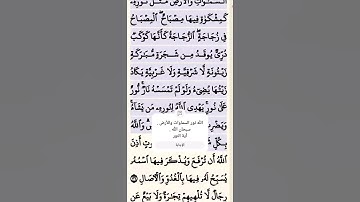 ٱلسَّمَٰوَٰتِ وَٱلْأَرْضِ مَثَلُ نُورِهِۦ
كَمِشْكَوٰةٍ فِيهَا مِصْبَاحٌ ٱلْمِصْبَاحُ
فِي زُجَاجَةٍ ٱلزُّجَاجَةُ كَأَنَّهَا كَوْكَبٌ
دُرِّيٌّ يُوقَدُ مِن شَجَرَةٍ مُّبَٰرَكَةٍ
زَيْتُونَةٍ لَّا شَرْقِيَّةٍ وَلَا غَرْبِيَّةٍ يَكَادُ
زَيْتُهَا يُضِيٓءُ وَلَوْ لَمْ تَمْسَسْهُ نَارٌ نُّورٌ
عَلَىٰ نُورٍ يَهْدِي ٱللَّهُ لِنُورِهِۦ مَن يَشَآءُ
وَيَضْرِ
الله نور السماوات والأرض
سبحان الله
آية النور
وَٱللَّهُ
بِكُلِّ
أَذِنَ
ٱللَّهُ أَن تُرْفَعَ وَيُذْكَرَ فِيهَا ٱسْمُهُۥ
يُسَبِّحُ لَهُۥ فِيهَا بِٱلْغُدُوِّ وَٱلْءَاصَالِ
رِجَالٌ لَّا تُلْهِيهِمْ تِجَٰرَةٌ وَلَا بَيْعٌ عَن